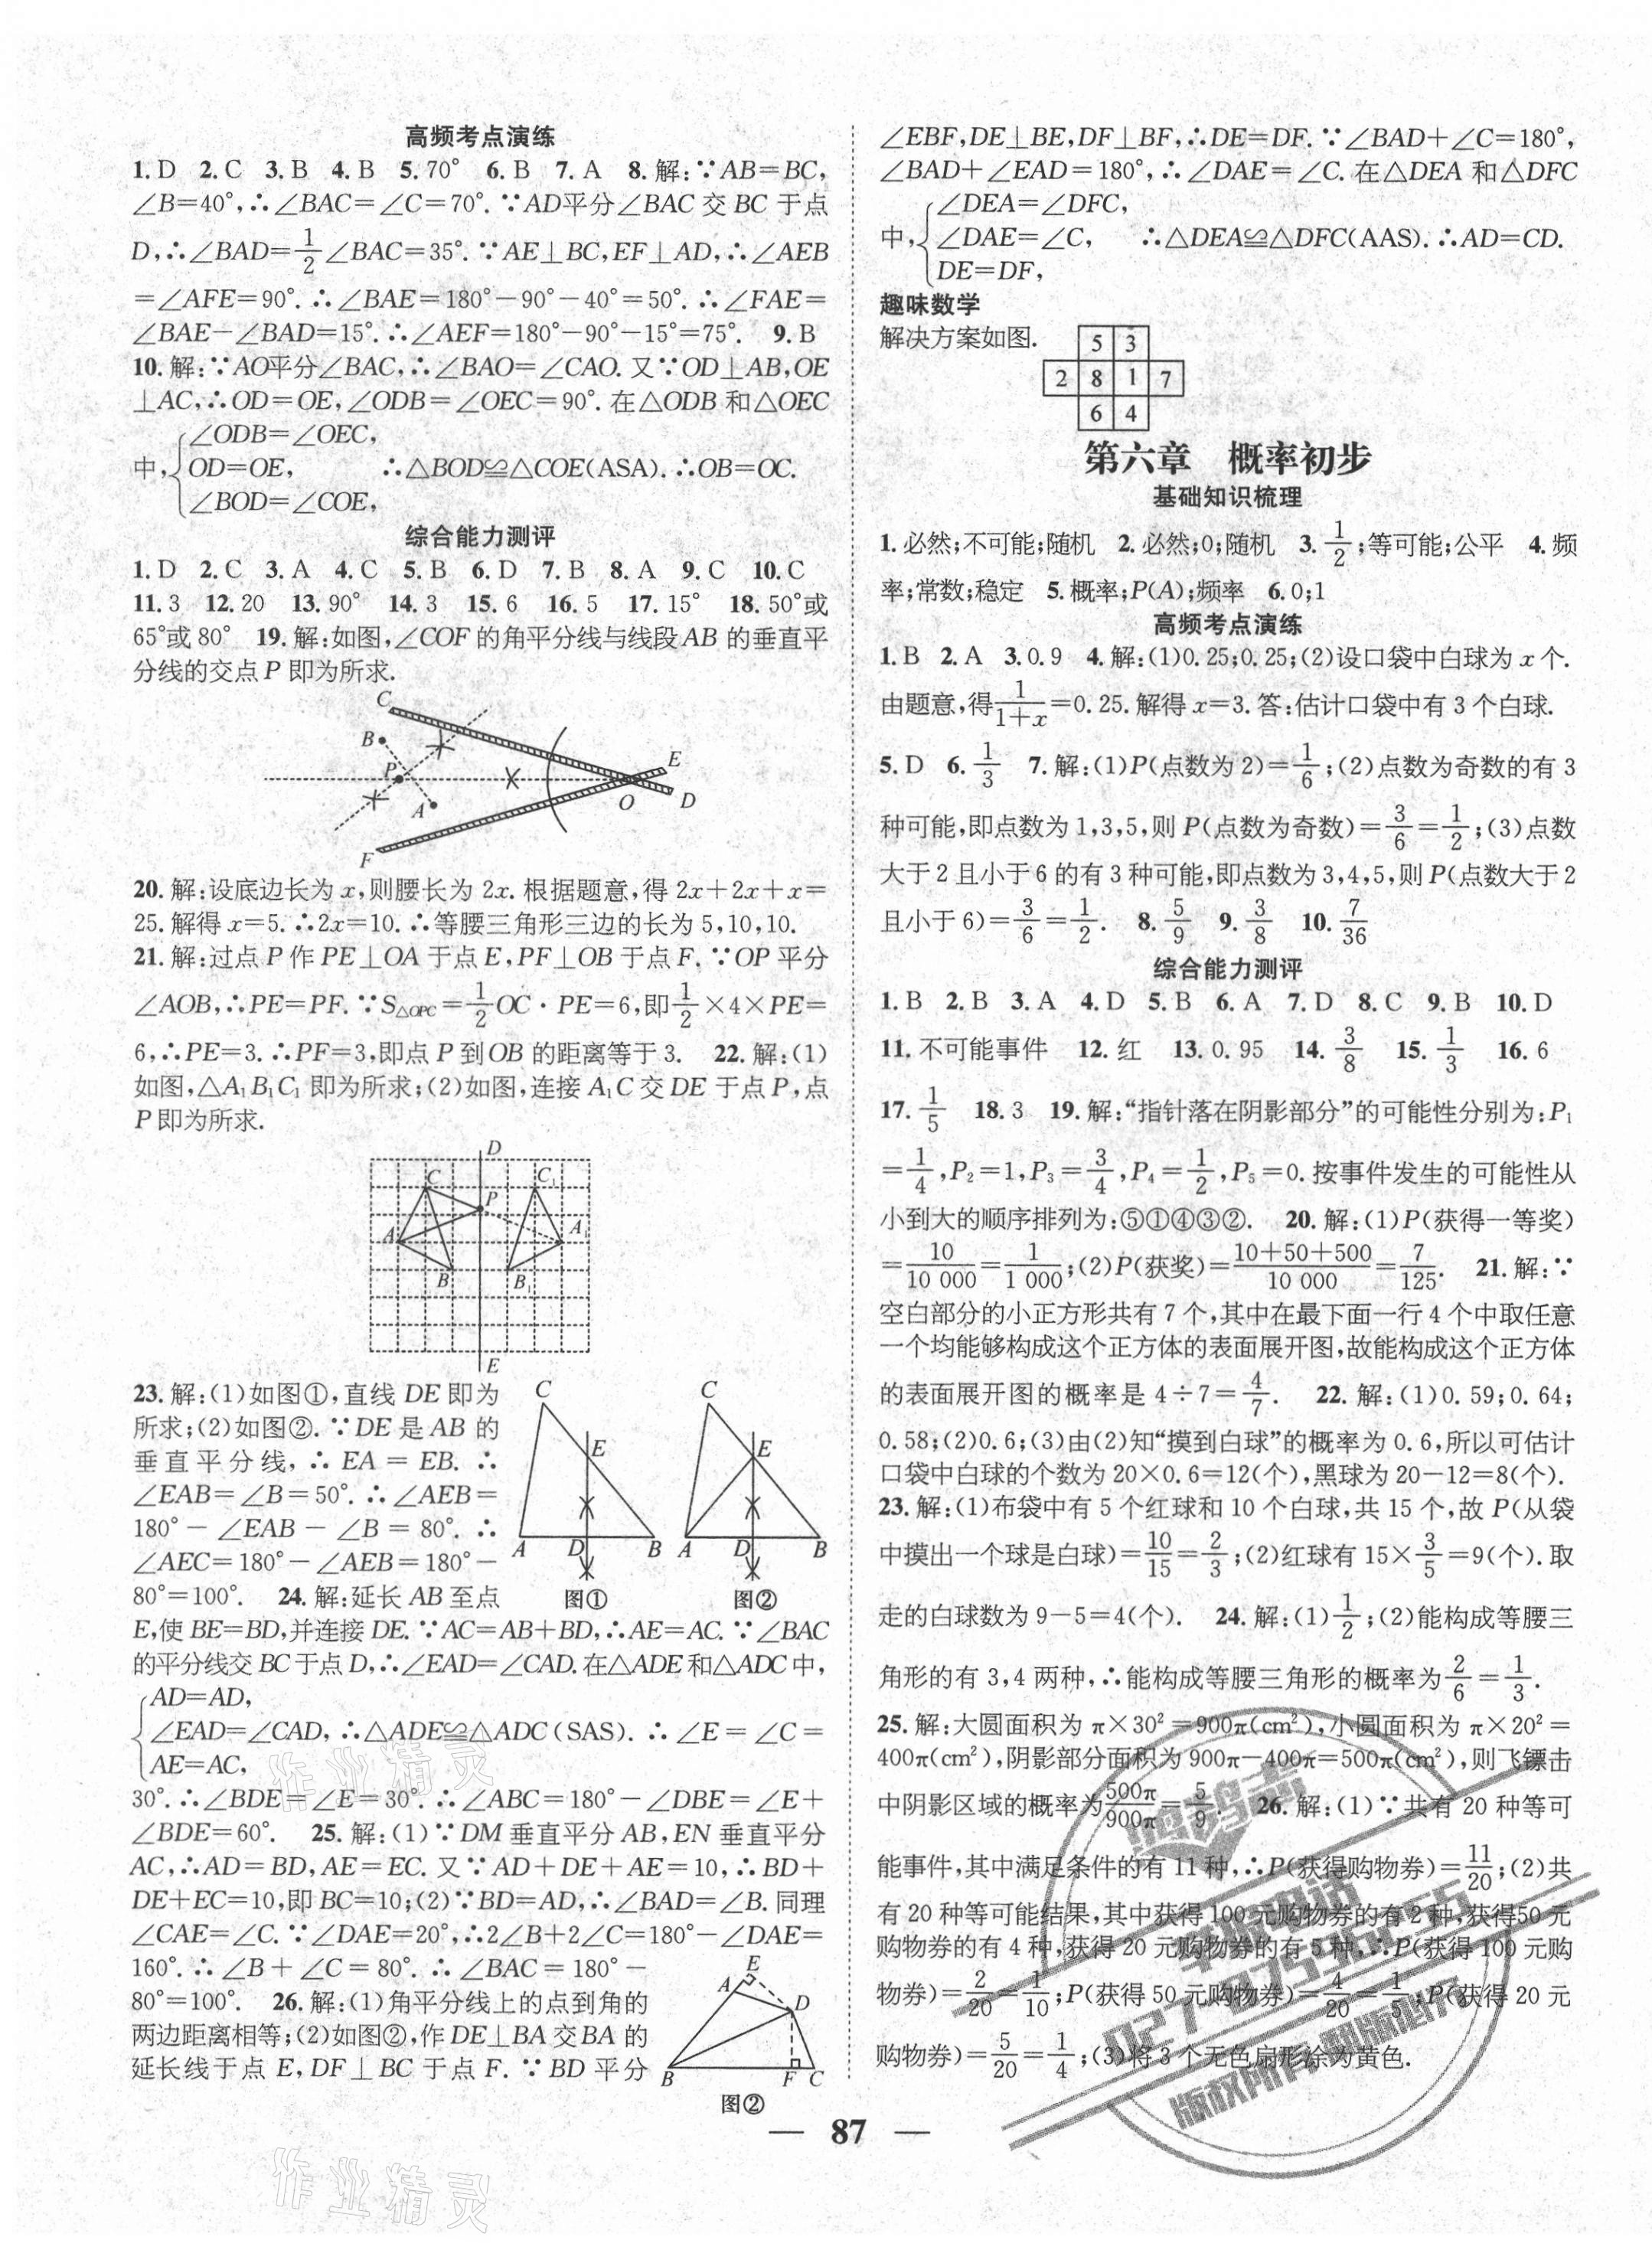 高频考点演练
1. D  2. C  3. B  4. B  5. 70°  6. B  7. A  8. 解:∵AB=BC,
∠B=40°,∴∠BAC=∠C=70°. ∵AD平分∠BAC 交 BC 于点
D,∴∠BAD=1/2∠BAC=35°. ∵AE⊥BC,EF⊥AD,∴∠AEB
=∠AFE=90°. ∴∠BAE=180°-90°-40°=50°. ∴∠FAE=
∠BAE-∠BAD=15°. ∴∠AEF=180°-90°-15°=75°.  9. B
10. 解:∵AO平分∠BAC,∴∠BAO=∠CAO. 又∵OD⊥AB,OE
⊥AC,∴OD=OE,∠ODB=∠OEC=90°. 在△ODB 和△OEC
∠ODB=∠OEC,
中,{OD=OE,  ∴△BOD≌△COE(ASA). ∴OB=OC.
∠BOD=∠COE,
综合能力测评
1. D  2. C  3. A  4. C  5. B  6. D  7. B  8. A  9. C  10. C
11. 3  12. 20  13. 90°  14. 3  15. 6  16. 5  17. 15°  18. 50°或
65°或 80°  19. 解:如图,∠COF 的角平分线与线段 AB 的垂直平
分线的交点 P 即为所求.
C
B
P
E
A
O
D
F
20. 解:设底边长为 x,则腰长为 2x. 根据题意,得 2x+2x+x=
25. 解得 x=5. ∴2x=10. ∴等腰三角形三边的长为 5,10,10.
21. 解:过点 P 作 PE⊥OA 于点 E,PF⊥OB 于点 F. ∵OP 平分
∠AOB,∴PE=PF. ∵S△OPC=1/2 OC·PE=6,即1/2×4×PE=
6,∴PE=3. ∴PF=3,即点 P 到 OB 的距离等于 3.  22. 解:(1)
如图,△A₁B₁C₁ 即为所求;(2)如图,连接 A₁C 交 DE 于点 P,点
P 即为所求.
D
C C₁
P
A A₁
B B₁
E
23. 解:(1)如图①,直线 DE 即为
所求;(2)如图②. ∵DE 是 AB 的
垂直平分线,∴EA=EB. ∴
∠EAB=∠B=50°. ∴∠AEB=
180°-∠EAB-∠B=80°. ∴
∠AEC=180°-∠AEB=180°-
80°=100°.  24. 解:延长 AB 至点
C C
E E
A D B A D B
图① 图②
E,使 BE=BD,并连接 DE. ∵AC=AB+BD,∴AE=AC. ∵∠BAC
的平分线交 BC 于点 D,∴∠EAD=∠CAD. 在△ADE 和△ADC 中,
AD=AD,
{∠EAD=∠CAD, ∴△ADE≌△ADC(SAS). ∴∠E=∠C=
AE=AC,
30°. ∴∠BDE=∠E=30°. ∴∠ABC=180°-∠DBE=∠E+
∠BDE=60°.  25. 解:(1)∵DM 垂直平分 AB,EN 垂直平分
AC,∴AD=BD,AE=EC. 又∵AD+DE+AE=10,∴BD+
DE+EC=10,即 BC=10;(2)∵BD=AD,∴∠BAD=∠B. 同理
∠CAE=∠C. ∵∠DAE=20°,∴2∠B+2∠C=180°-∠DAE=
160°. ∴∠B+∠C=80°. ∴∠BAC=180°-
80°=100°.  26. 解:(1)角平分线上的点到角的
两边距离相等;(2)如图②,作 DE⊥BA 交 BA 的
延长线于点 E,DF⊥BC 于点 F. ∵BD 平分
E
A
D
B F C
图②
∠EBF,DE⊥BE,DF⊥BF,∴DE=DF. ∵∠BAD+∠C=180°,
∠BAD+∠EAD=180°,∴∠DAE=∠C. 在△DEA 和△DFC
∠DEA=∠DFC,
中,{∠DAE=∠C,  ∴△DEA≌△DFC(AAS). ∴AD=CD.
DE=DF,
趣味数学
解决方案如图.
5 3
2 8 1 7
6 4
第六章 概率初步
基础知识梳理
1. 必然;不可能;随机  2. 必然;0;随机  3. 1/2;等可能;公平  4. 频
率;常数;稳定  5. 概率;P(A);频率  6. 0;1
高频考点演练
1. B  2. A  3. 0.9  4. 解:(1)0.25;0.25;(2)设口袋中白球为 x 个.
由题意,得1/(1+x)=0.25. 解得 x=3. 答:估计口袋中有 3 个白球.
5. D  6. 1/3  7. 解:(1)P(点数为 2)=1/6;(2)点数为奇数的有 3
种可能,即点数为 1,3,5,则 P(点数为奇数)=3/6=1/2;(3)点数
大于 2 且小于 6 的有 3 种可能,即点数为 3,4,5,则 P(点数大于 2
且小于 6)=3/6=1/2.  8. 5/9  9. 3/8  10. 7/36
综合能力测评
1. B  2. B  3. A  4. D  5. B  6. A  7. D  8. C  9. B  10. D
11. 不可能事件  12. 红  13. 0.95  14. 3/8  15. 1/3  16. 6
17. 1/5  18. 3  19. 解:“指针落在阴影部分”的可能性分别为:P₁
=1/4,P₂=1,P₃=3/4,P₄=1/2,P₅=0. 按事件发生的可能性从
小到大的顺序排列为:⑤①④③②.  20. 解:(1)P(获得一等奖)
=10/10 000=1/1 000;(2)P(获奖)=(10+50+500)/10 000=7/125.  21. 解:∵
空白部分的小正方形共有 7 个,其中在最下面一行 4 个中取任意
一个均能够构成这个正方体的表面展开图,故能构成这个正方体
的表面展开图的概率是 4÷7=4/7.  22. 解:(1)0.59;0.64;
0.58;(2)0.6;(3)由(2)知“摸到白球”的概率为 0.6,所以可估计
口袋中白球的个数为 20×0.6=12(个),黑球为 20-12=8(个).
23. 解:(1)布袋中有 5 个红球和 10 个白球,共 15 个,故 P(从袋
中摸出一个球是白球)=10/15=2/3;(2)红球有 15×3/5=9(个). 取
走的白球数为 9-5=4(个).  24. 解:(1)1/2;(2)能构成等腰三
角形的有 3,4 两种,∴能构成等腰三角形的概率为2/6=1/3.
25. 解:大圆面积为 π×30²=900π(cm²),小圆面积为 π×20²=
400π(cm²),阴影部分面积为 900π-400π=500π(cm²),则飞镖击
中阴影区域的概率为500π/900π=5/9.  26. 解:(1)∵共有 20 种等可
能事件,其中满足条件的有 11 种,∴P(获得购物券)=11/20;(2)共
有 20 种等可能结果,其中获得 100 元购物券的有 2 种,获得50 元
购物券的有 4 种,获得 20 元购物券的有 5 种,∴P(获得 100 元购
物券)=2/20=1/10;P(获得 50 元购物券)=4/20=1/5;P(获得 20 元
购物券)=5/20=1/4;(3)将 3 个无色扇形涂为黄色.
版权所有 翻版必究
作业精灵
作业精灵
— 87 —